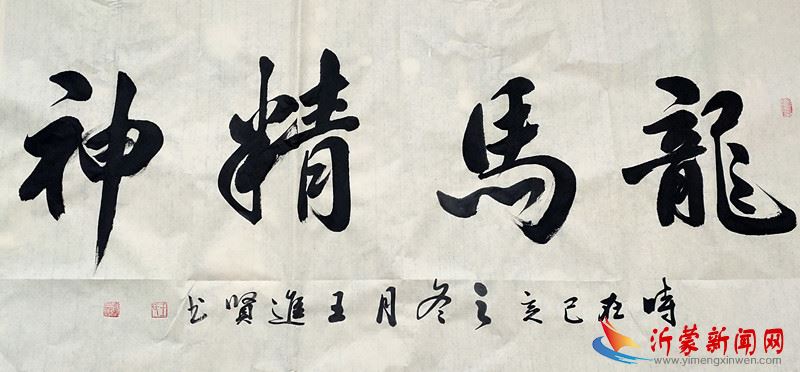 龍馬精神
時在己亥之冬月王進賢书
沂蒙新闻网
www.yimengxinwen.com